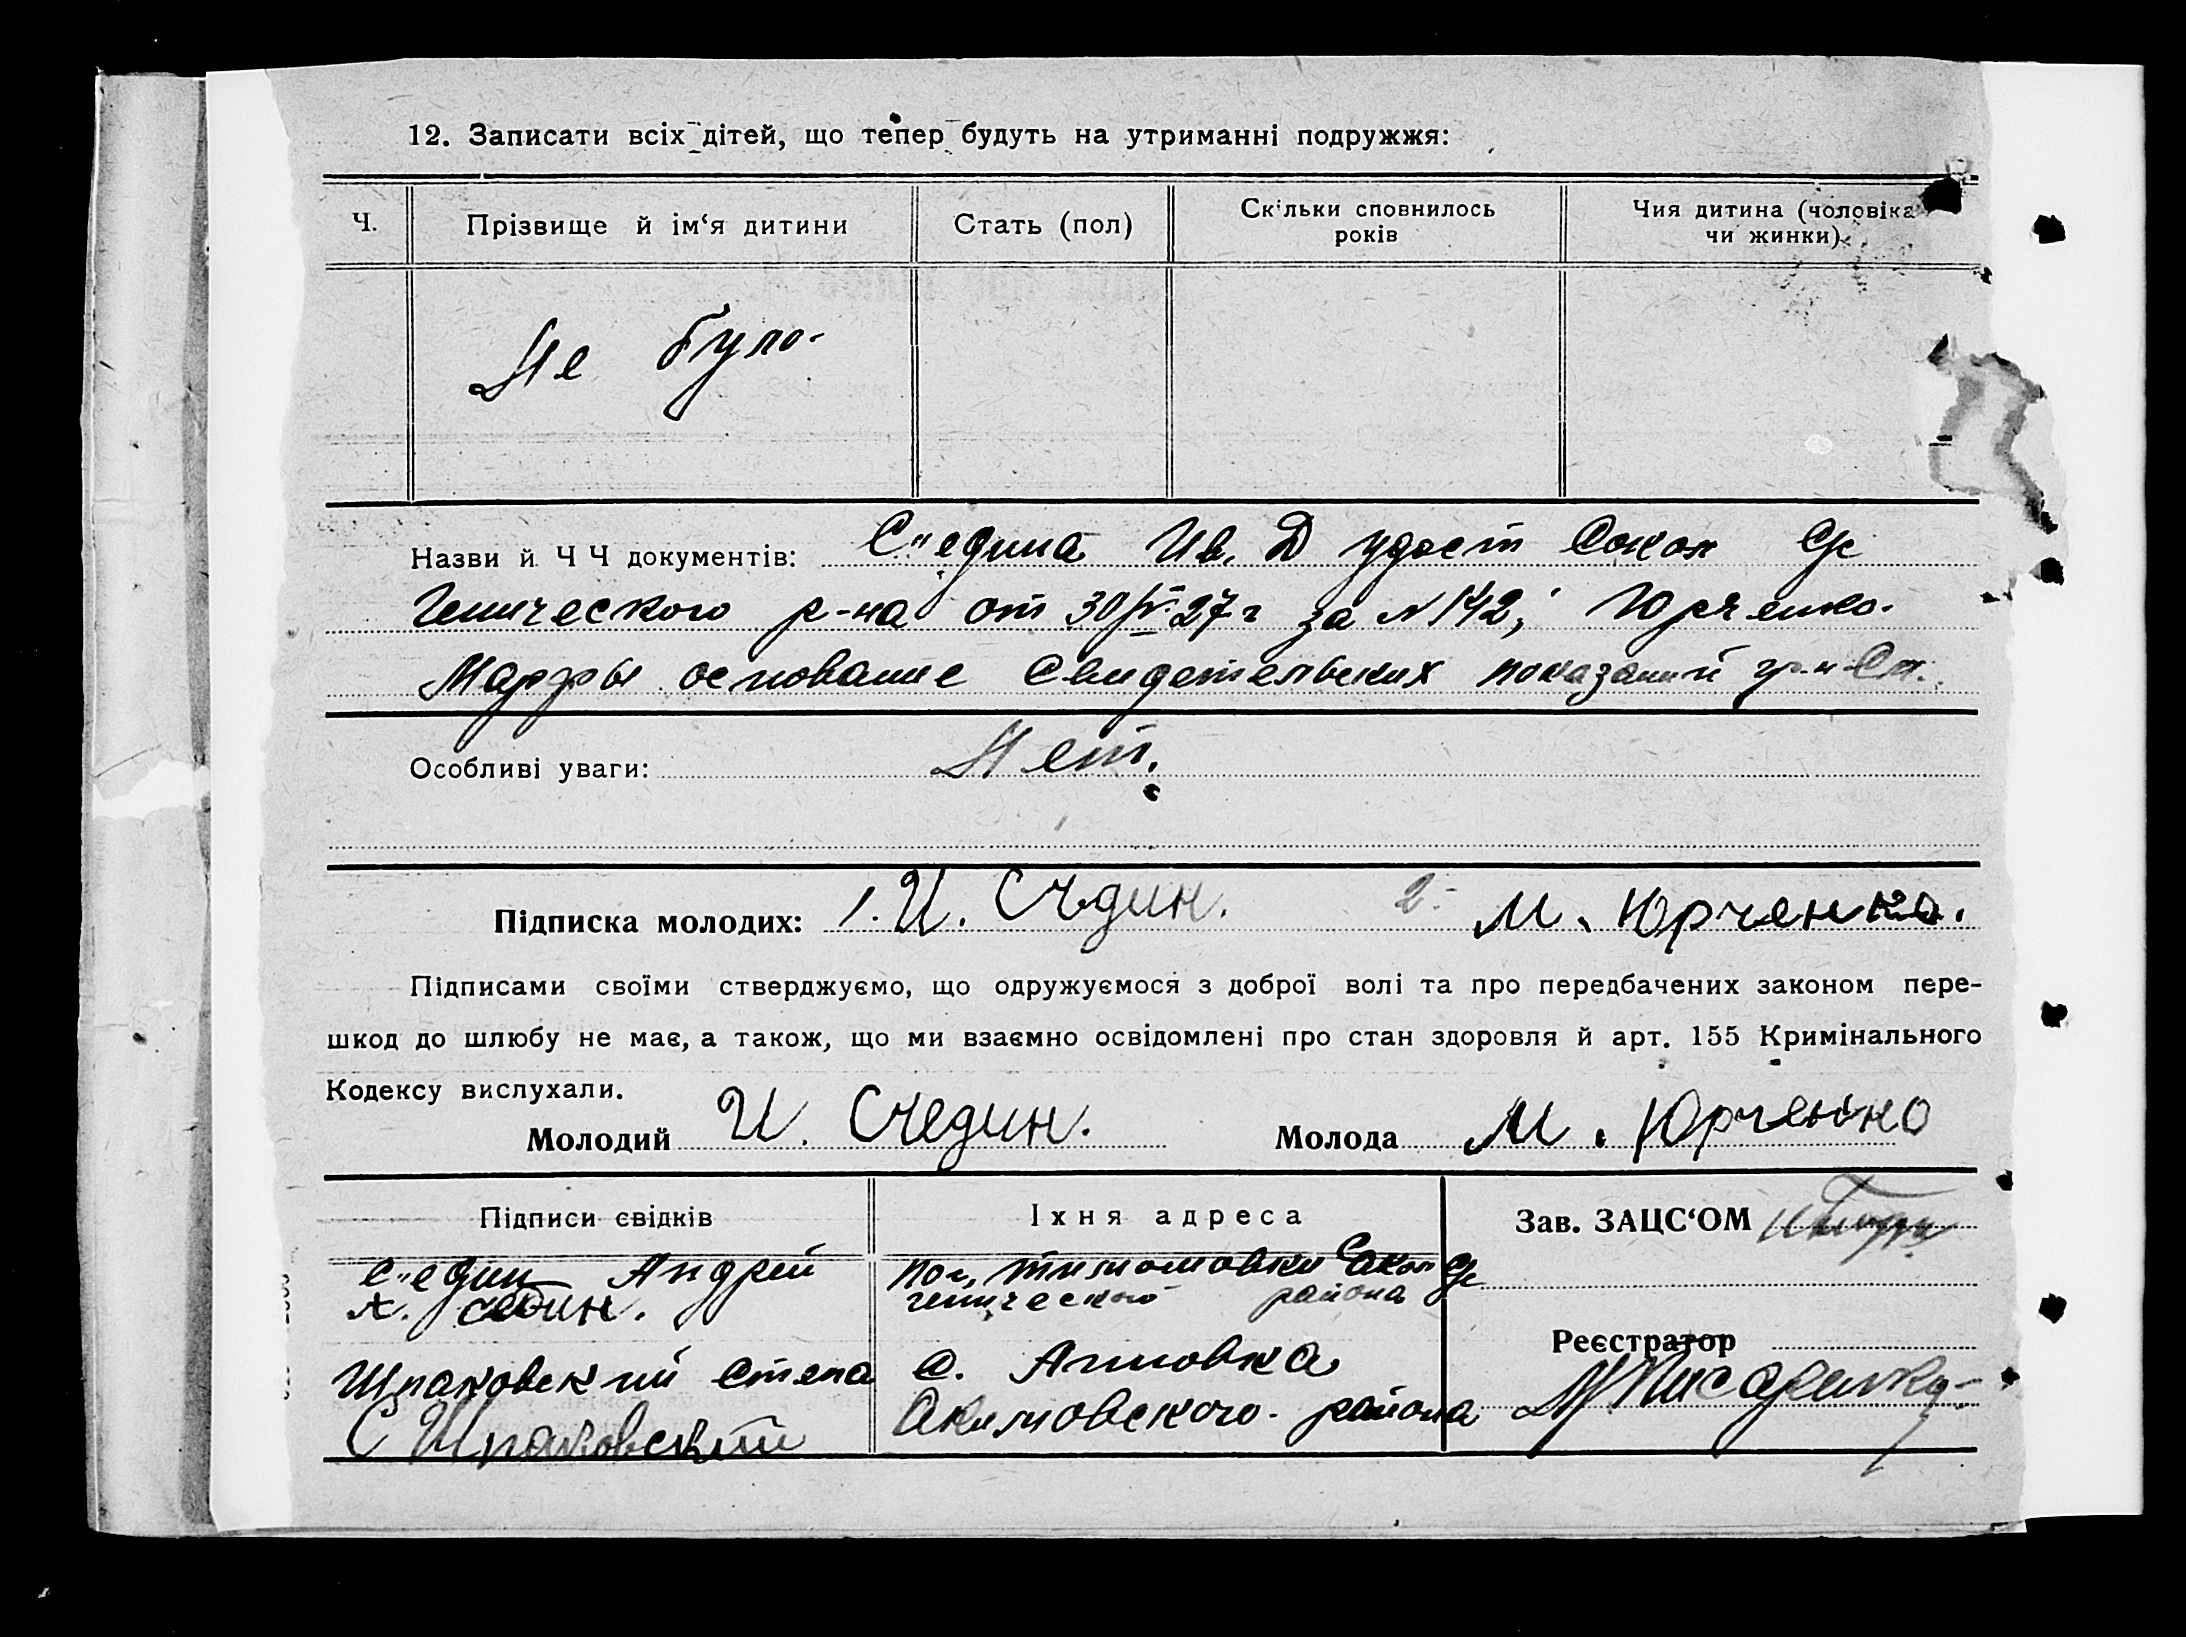 12. Записати всіх дітей, що тепер будуть на утриманні подружжя:
Ч. Прізвище й ім‘я дитини Стать (пол) Скільки сповнилось років Чия дитина (чоловіка чи жинки)
Не було
Назви й Ч Ч документів: Счедина Ив. Д удост Сокол
Генического р-на от 30/VI 27 г за N 142; Юрченко
Марфы основание Свидетельских показаний
Особливі уваги: Нет.
Підписка молодих: 1. И. Счедин. 2 М. Юрченко.
Підписами своїми стверджуємо, що одружуємося з доброї волі та про передбачених законом пере-
шкод до шлюбу не має, а також, що ми взаємно освідомлені про стан здоровля й арт. 155 Кримінального
Кодексу вислухали.
Молодий И. Счедин. Молода М. Юрченко
Підписи євідків Їхня адреса Зав. ЗАЦС‘ОМ
Счедин Андрей пос.
генического района
Реєстратор
Шпаковский Степа с. Анновка
С Шпаковский Акимовского района